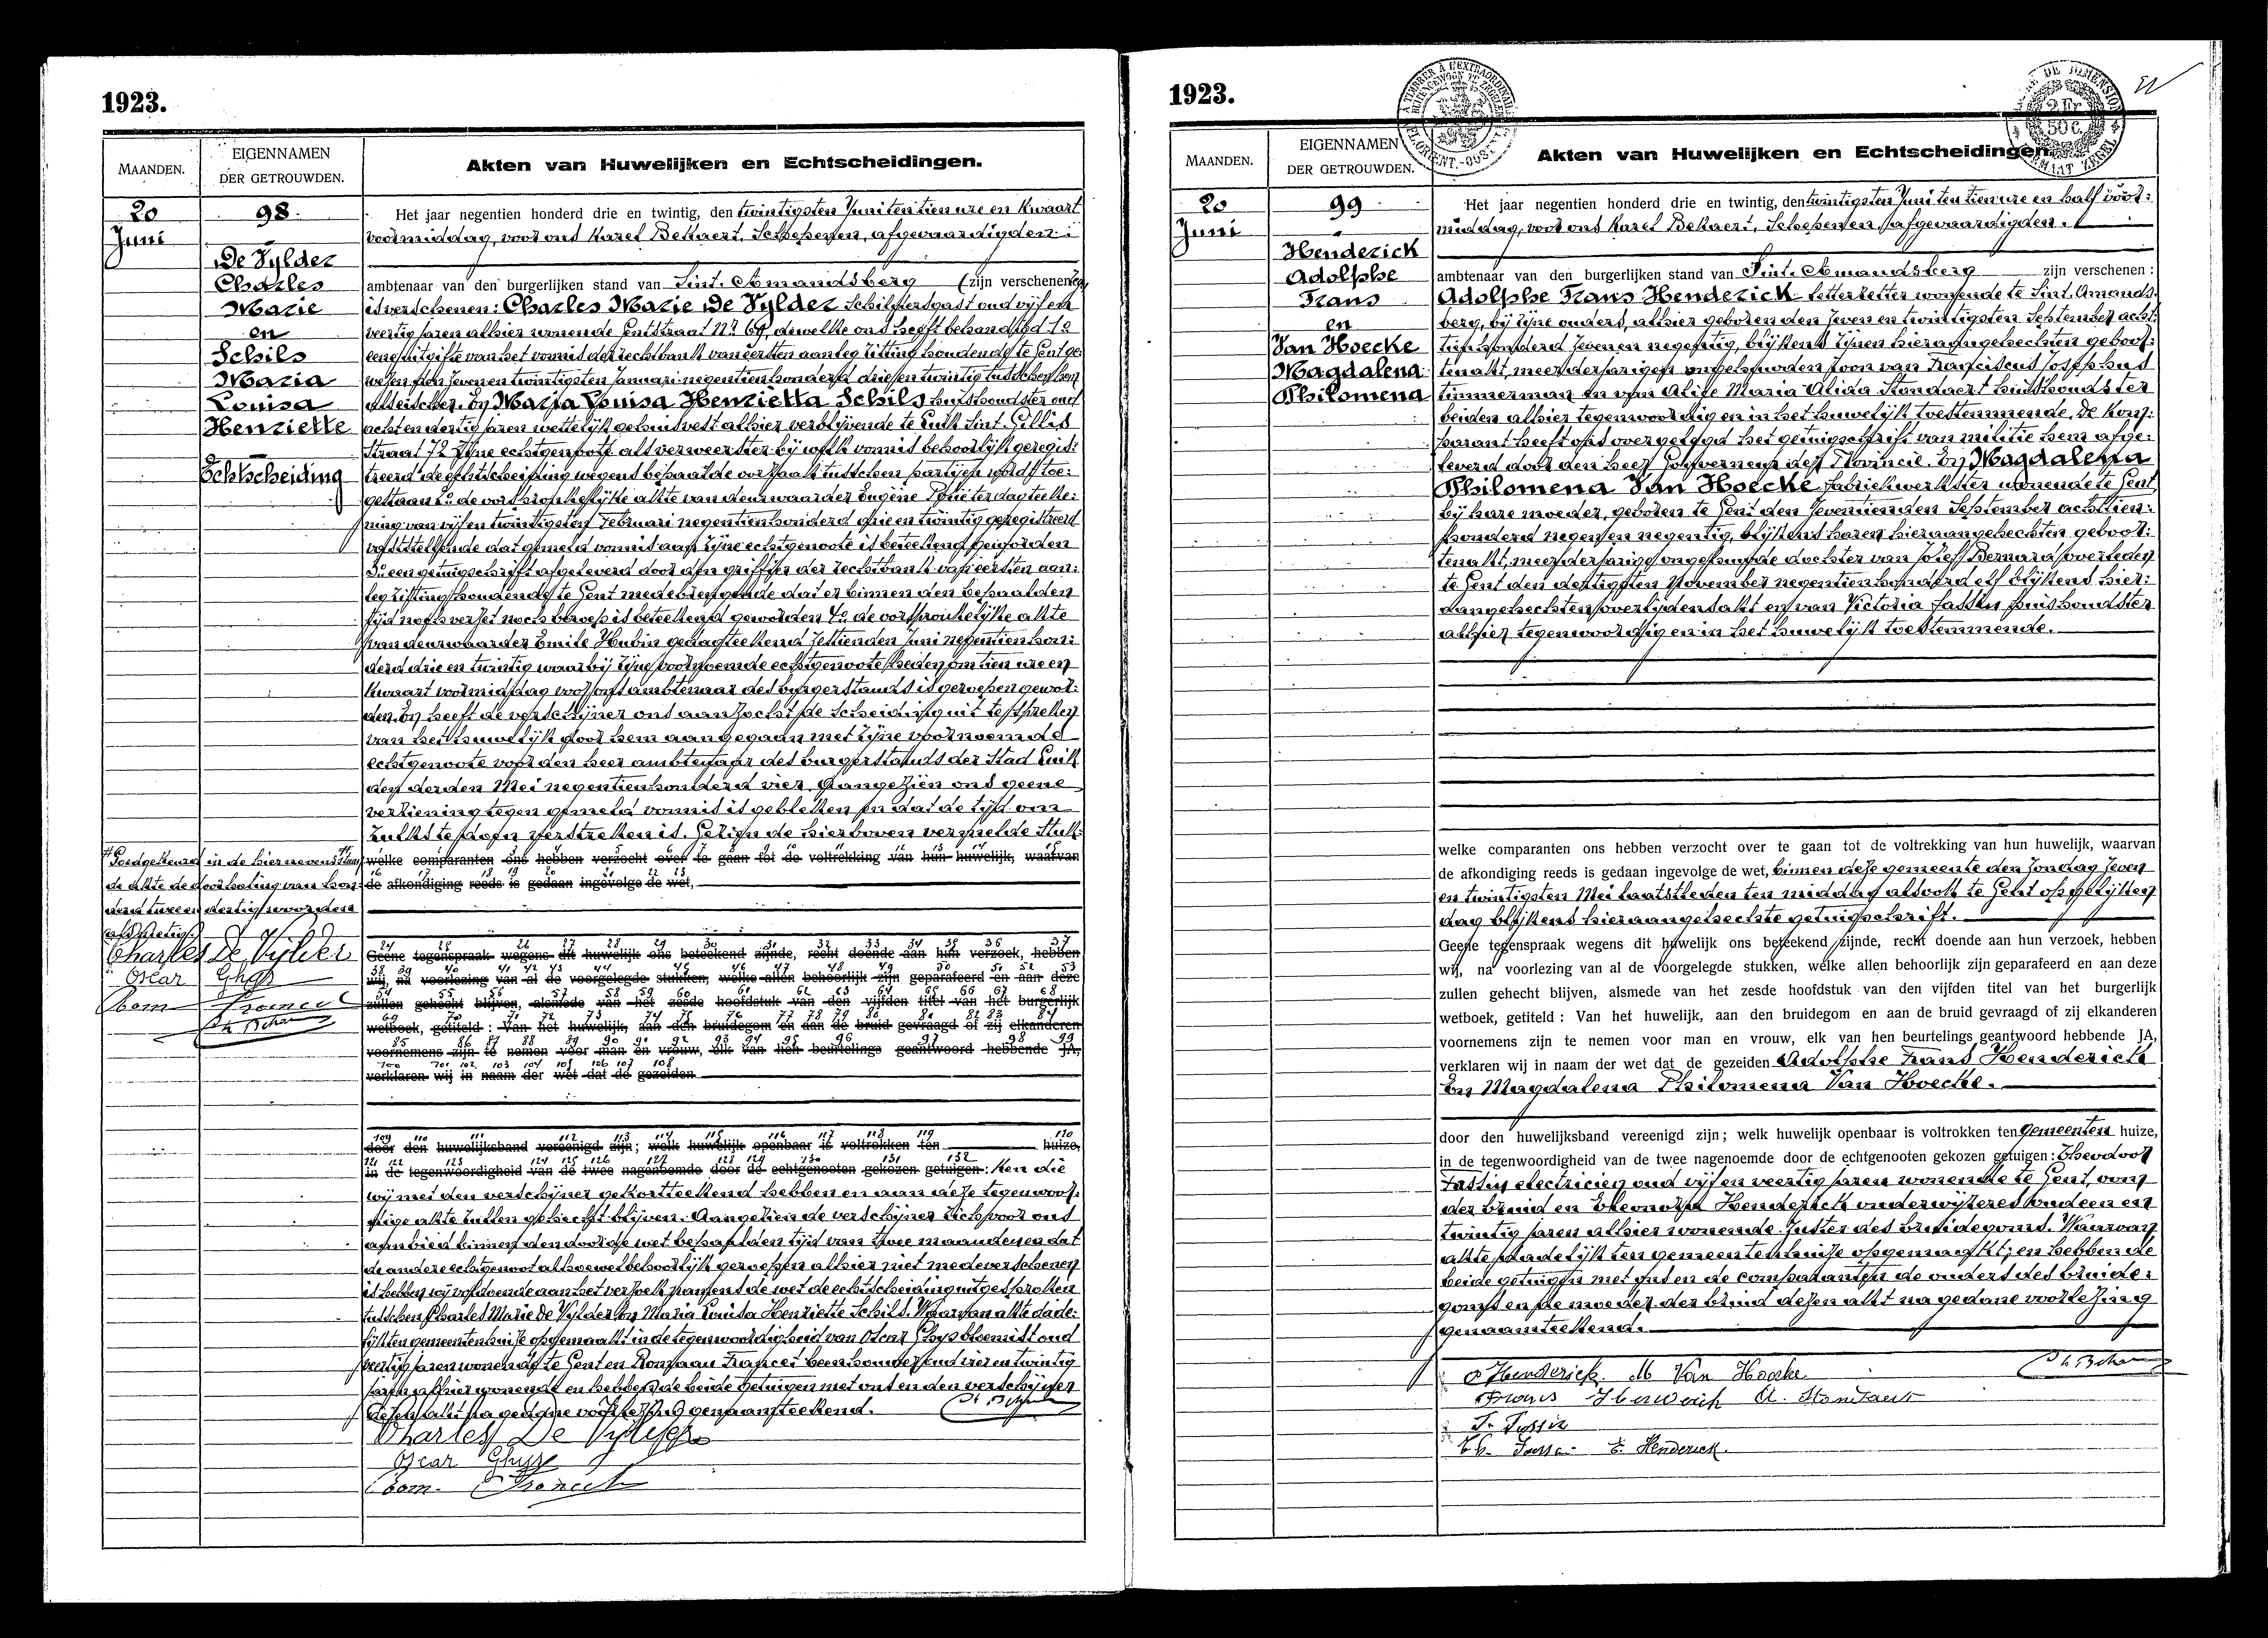 1923.
MAANDEN.
EIGENNAMEN
DER GETROUWDEN.
Akten van Huwelijken en Echtscheidingen.
20
Juni
98.
De Vylder
Charles
Marie
en
Schils
Maria
Louisa
Henriette
Echtscheiding
Het jaar negentien honderd drie en twintig, den twintigsten Juni ten tien ure en kwaart
voormiddag, voor ons Karel Bekaert, Schepenen, afgevaardigden
ambtenaar van den burgerlijken stand van Sint-Amandsberg (zijn verschenen)
is verschenen: Charles Marie De Vylder schildersgast oud vijf en
veertig jaren alhier wonende Gentstraat Nr 64, dewelke ons heeft behandigd 1°
eene uitgifte van het vonnis der rechtbank van eersten aanleg zitting houdende te Gent ge
wezen den zeven en twintigsten Januari negentienhonderd drie en twintig tusschen hem
als eischer. En Maria Louisa Henrietta Schils huishoudster oud
acht en dertig jaren wettelijk gehuisvest alhier verblijvende te Luik Sint-Gillis
straat 72 zijne echtgenoote als verweerster bij welk vonnis behoorlijk geregis-
treerd de echtscheiding wegens bepaalde oorzaak tusschen partijen wordt toe-
gestaan 2° de oorspronkelijke akte van deurwaarder Eugène dagteeke-
ning van vijf en twintigsten Februari negentienhonderd drie en twintig geregistreerd
vaststellende dat gemeld vonnis aan zijne echtgenoote is beteekend geworden
3° een getuigschrift afgeleverd door den griffier der rechtbank van eersten aan-
leg zitting houdende te Gent medebrengende dat er binnen den bepaalden
tijd noch verzet noch beroep is beteekend geworden 4° de oorspronkelijke akte
van deurwaarder Emile Hubin gedagteekend zestienden Juni negentienhon-
derd drie en twintig waarbij zijne voornoemde echtgenoote heden om tien ure en
kwaart voormiddag voor ons ambtenaar des burgerstands is geroepen gewor-
den. En heeft de verschijner ons aanzocht de scheiding uit te spreken
van het huwelijk door hem aangegaan met zijne voornoemde
echtgenoote voor den heer ambtenaar des burgerstands der Stad Luik
den derden Mei negentienhonderd vier. Aangezien ons geene
verziening tegen gemeld vonnis is gebleken en dat de tijd om
zulks te doen verstreken is. Gezien de hierboven vermelde stuk-
welke comparanten ons hebben verzocht over te gaan tot de voltrekking van hun huwelijk, waarvan
de afkondiging reeds is gedaan ingevolge de wet,
Goedgekeurd in de hiernevenstaan
de akte de doorhaling van hon-
derd twee en dertig woorden
Charles De Vylder
Oscar Ghys
Rom Francet
Geene tegenspraak wegens dit huwelijk ons beteekend zijnde, recht doende aan hun verzoek, hebben
wij, na voorlezing van al de voorgelegde stukken, welke allen behoorlijk zijn geparafeerd en aan deze
zullen gehecht blijven, alsmede van het zesde hoofdstuk van den vijfden titel van het burgerlijk
wetboek, getiteld : Van het huwelijk, aan den bruidegom en aan de bruid gevraagd of zij elkanderen
voornemens zijn te nemen voor man en vrouw, elk van hen beurtelings geantwoord hebbende JA,
verklaren wij in naam der wet dat de gezeiden
door den huwelijksband vereenigd zijn; welk huwelijk openbaar is voltrokken ten huize,
in de tegenwoordigheid van de twee nagenoemde door de echtgenooten gekozen getuigen: ken die
wij met den verschijner gekortteekend hebben en aan deze tegenwoor-
dige akte zullen gehecht blijven. Aangezien de verschijner zich voor ons
aanbied binnen den door de wet bepaalden tijd van twee maanden en dat
de andere echtgenoot alhoewel behoorlijk geroepen alhier niet medeverschenen
is hebben wij voldoende aan het verzoek namens de wet de echtscheiding uitgesproken
tusschen Charles Marie De Vylder en Maria Louisa Henriette Schils. Waarvan akte dade-
lijk ten gemeentenhuize opgemaakt in de tegenwoordigheid van Oscar Ghys bloemist oud
veertig jaren wonende te Gent en Romaan Francet beenhouwer oud vier en twintig
jaren alhier wonende en hebben de beide getuigen met ons en den verschijner
dezen akt na gedane voorlezing genaamteekend.
Charles De Vylder
Oscar Ghys
Rom. Francet
1923.
MAANDEN.
EIGENNAMEN
DER GETROUWDEN.
Akten van Huwelijken en Echtscheidingen.
20
Juni
99
Henderick
Adolphe
Frans
en
Van Hoecke
Magdalena
Philomena
Het jaar negentien honderd drie en twintig, den twintigsten Juni ten tien ure en half voor-
middag, voor ons Karel Bekaert, Schepenen, afgevaardigden.
ambtenaar van den burgerlijken stand van Sint-Amandsberg zijn verschenen :
Adolphe Frans Henderick letterzetter wonende te Sint-Amands-
berg, bij zijne ouders, alhier geboren den zeven en twintigsten September acht-
tienhonderd zeven en negentig, blijkens zijnen hieraangehechten geboor-
tenakt, meerderjarigen ongehuwden zoon van Franciscus Josephus
timmerman en van Alice Maria Alida Standaert huishoudster
beiden alhier tegenwoordig en in het huwelijk toestemmende. De kom-
parant heeft ons overgelegd het getuigschrift van militie hem afge-
leverd door den heer Gouverneur der Provincie. En Magdalena
Philomena Van Hoecke fabriekwerkster wonende te Gent
bij hare moeder, geboren te Gent den zeventienden September achttien-
honderd negen en negentig, blijkens haren hieraangehechten geboor-
tenakt, meerderjarige ongehuwde dochter van Jozef Bernard overleden
te Gent den dertigsten November negentienhonderd elf blijkens hier-
aangehechten overlijdensakt en van Victoria Tassin huishoudster
alhier tegenwoordig en in het huwelijk toestemmende.
welke comparanten ons hebben verzocht over te gaan tot de voltrekking van hun huwelijk, waarvan
de afkondiging reeds is gedaan ingevolge de wet, binnen deze gemeente den zondag zeven
en twintigsten Mei laatstleden ten middag alsook te Gent op gelijken
dag blijkens hieraangehechte getuigschrift.
Geene tegenspraak wegens dit huwelijk ons beteekend zijnde, recht doende aan hun verzoek, hebben
wij, na voorlezing van al de voorgelegde stukken, welke allen behoorlijk zijn geparafeerd en aan deze
zullen gehecht blijven, alsmede van het zesde hoofdstuk van den vijfden titel van het burgerlijk
wetboek, getiteld : Van het huwelijk, aan den bruidegom en aan de bruid gevraagd of zij elkanderen
voornemens zijn te nemen voor man en vrouw, elk van hen beurtelings geantwoord hebbende JA,
verklaren wij in naam der wet dat de gezeiden Adolphe Frans Henderick
En Magdalena Philomena Van Hoecke.
door den huwelijksband vereenigd zijn; welk huwelijk openbaar is voltrokken ten Gemeenten huize,
in de tegenwoordigheid van de twee nagenoemde door de echtgenooten gekozen getuigen: Theodoor
Tassin electricien oud vijf en veertig jaren wonende te Gent, oom
der bruid en Eleonora Henderick onderwijzeres oud een en
twintig jaren alhier wonende zuster des bruidegoms. Waarvan
akte dadelijk ten gemeentenhuize opgemaakt; en hebben de
beide getuigen met ons en de comparanten de ouders des bruide-
goms en de moeder der bruid dezen akt na gedane voorlezing
genaamteekend.
A Henderick M Van Hoecke
Frans Henderick A. Standaert
T. Tassin
Th. Tassin E. Henderick